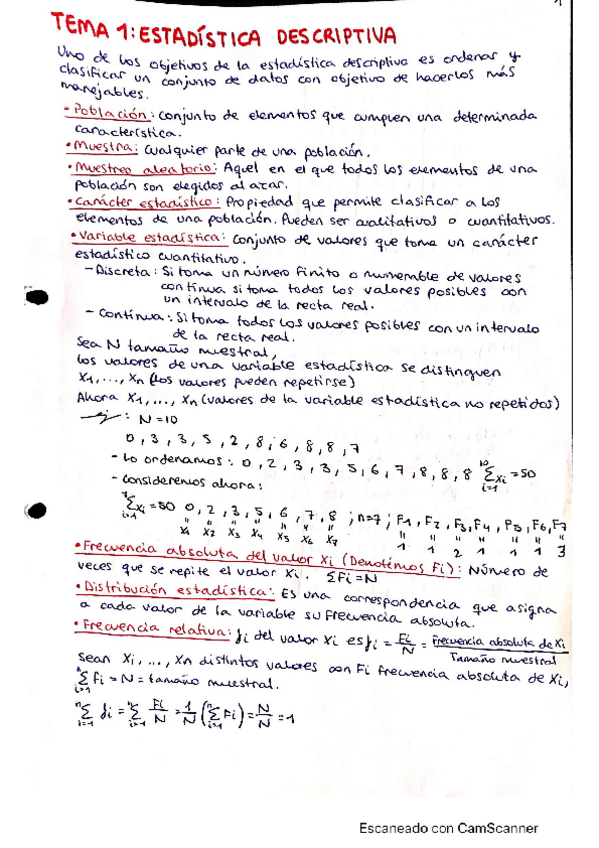 TEMA 1: ESTADÍSTICA DESCRIPTIVA
Uno de los objetivos de la estadística descriptiva es ordenar y
clasificar un conjunto de datos con objetivo de hacerlos más
manejables.
• Población: Conjunto de elementos que cumplen una determinada
característica.
• Muestra: Cualquier parte de una población.
• Muestreo aleatorio: Aquel en el que todos los elementos de una
población son elegidos al azar.
• Carácter estadístico: Propiedad que permite clasificar a los
elementos de una población. Pueden ser cualitativos o cuantitativos.
• Variable estadística: Conjunto de valores que toma un carácter
estadístico cuantitativo.
- Discreta: Si toma un número finito o numerable de valores
continua si toma todos los valores posibles con
un intervalo de la recta real.
- Continua: Si toma todos los valores posibles con un intervalo
de la recta real.
Sea N tamaño muestral,
los valores de una variable estadística se distinguen
x1, ..., xn (los valores pueden repetirse)
Ahora x1, ..., xn (valores de la variable estadística no repetidos)
ej: N=10
0, 3, 3, 5, 2, 8, 6, 8, 8, 7
- Lo ordenamos: 0, 2, 3, 3, 5, 6, 7, 8, 8, 8 10 Σ i=1 xi = 50
- Consideremos ahora:
7 Σ i=1 xi = 50 0, 2, 3, 5, 6, 7, 8 ; n=7; F1, F2, F3, F4, F5, F6, F7
" " " " " " " " " " " " " "
x1 x2 x3 x4 x5 x6 x7 1 1 2 1 1 1 3
• Frecuencia absoluta del valor xi (Denotémos Fi): Número de
veces que se repite el valor xi. ΣFi = N
• Distribución estadística: Es una correspondencia que asigna
a cada valor de la variable su frecuencia absoluta.
• Frecuencia relativa: fi del valor xi es fi = Fi/N = Frecuencia absoluta de xi / Tamaño muestral
Sean xi, ..., xn distintos valores con Fi frecuencia absoluta de xi,
n Σ i=1 Fi = N = tamaño muestral.
n Σ i=1 fi = n Σ i=1 Fi/N = 1/N (n Σ i=1 Fi) = N/N = 1
Escaneado con CamScanner